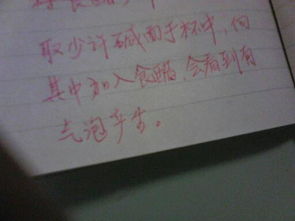 取少许碱面于杯中,向
其中加入食醋,会看到有
气泡产生。